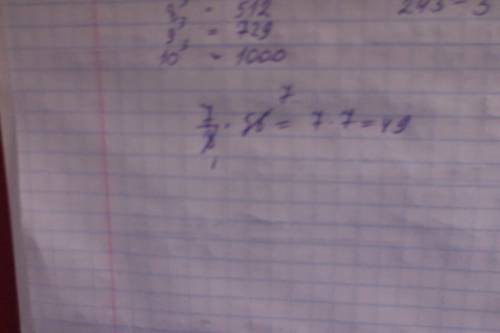 8³ = 512
9³ = 729
10³ = 1000
243 = 3
7/8 · 56 = 7 · 7 = 49
7
1